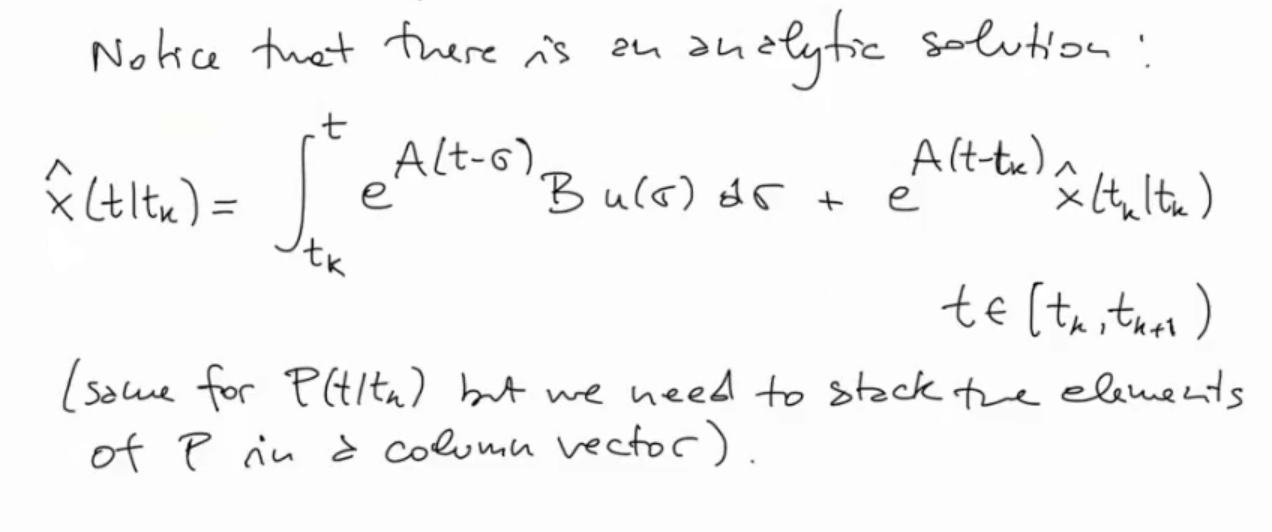 Notice that there is an analytic solution :
x̂(t|tₖ) = ∫_{tₖ}^{t} e^{A(t-σ)} B u(σ) dσ + e^{A(t-tₖ)} x̂(tₖ|tₖ)
t ∈ [tₖ, tₖ₊₁)
(same for P(t|tₖ) but we need to stack the elements
of P in a column vector).